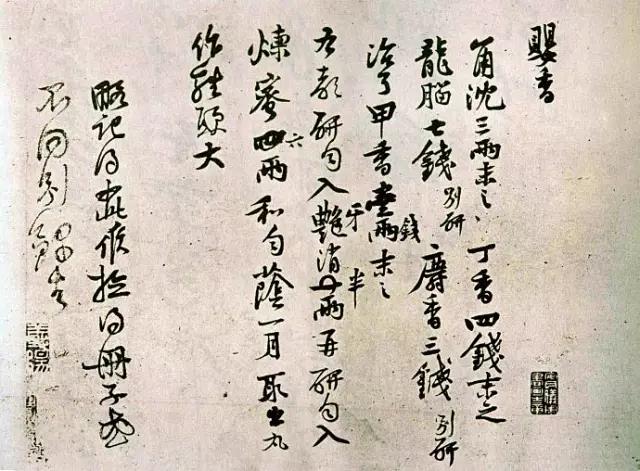 嬰香
角沈三兩末之 丁香四錢末之
龍腦七錢別研 麝香三錢別研
治了甲香壹兩錢末之
右都研勻入艷牙消一兩半再研勻入
煉蜜四六兩和勻蔭一月取出丸
作雞頭大
略記得如此候檢得冊子或
不同別錄去